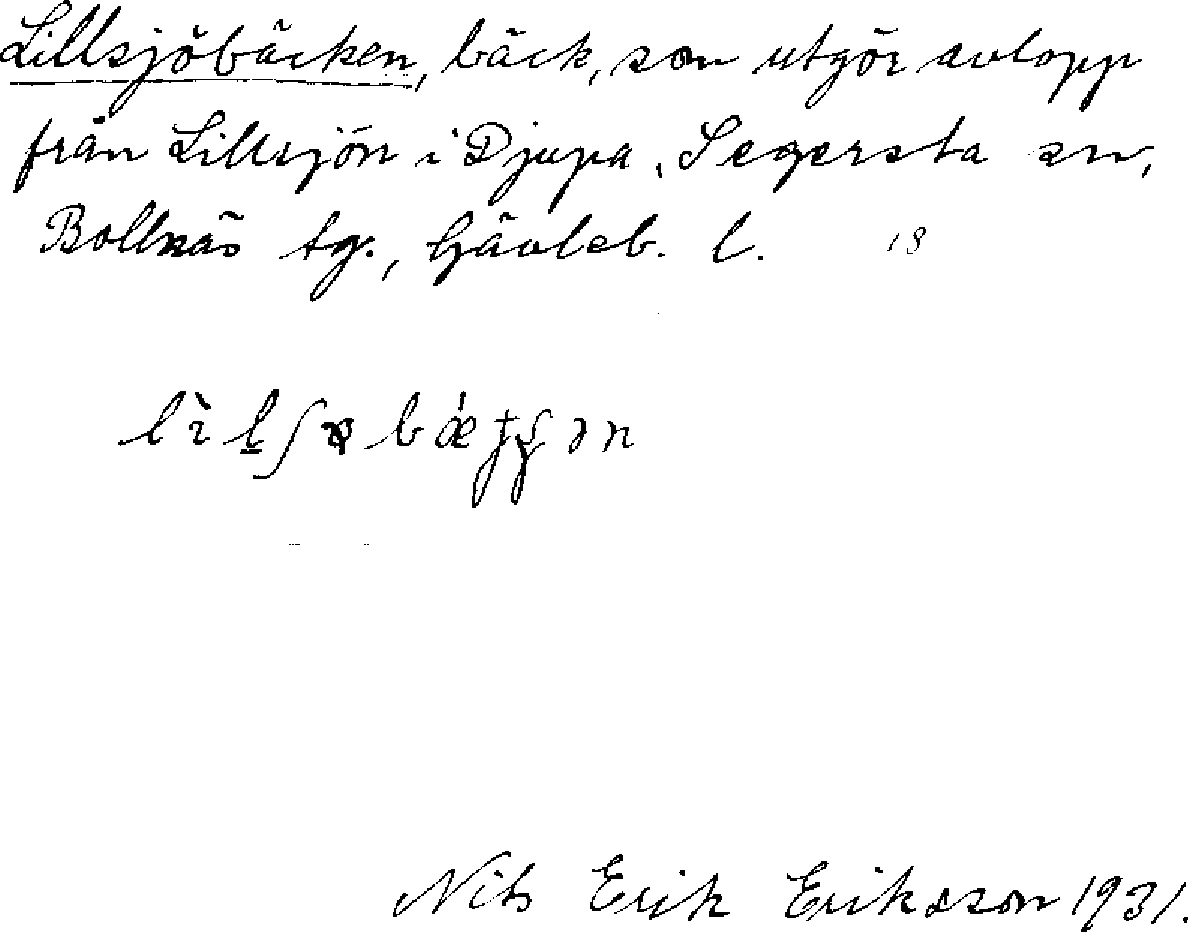 Lillsjöbäcken, bäck, som utgör avlopp
från Lillsjön i Djupa, Segersta sn,
Bollnäs tg., Gävleb. l. 18
Nils Erik Eriksson 1931.